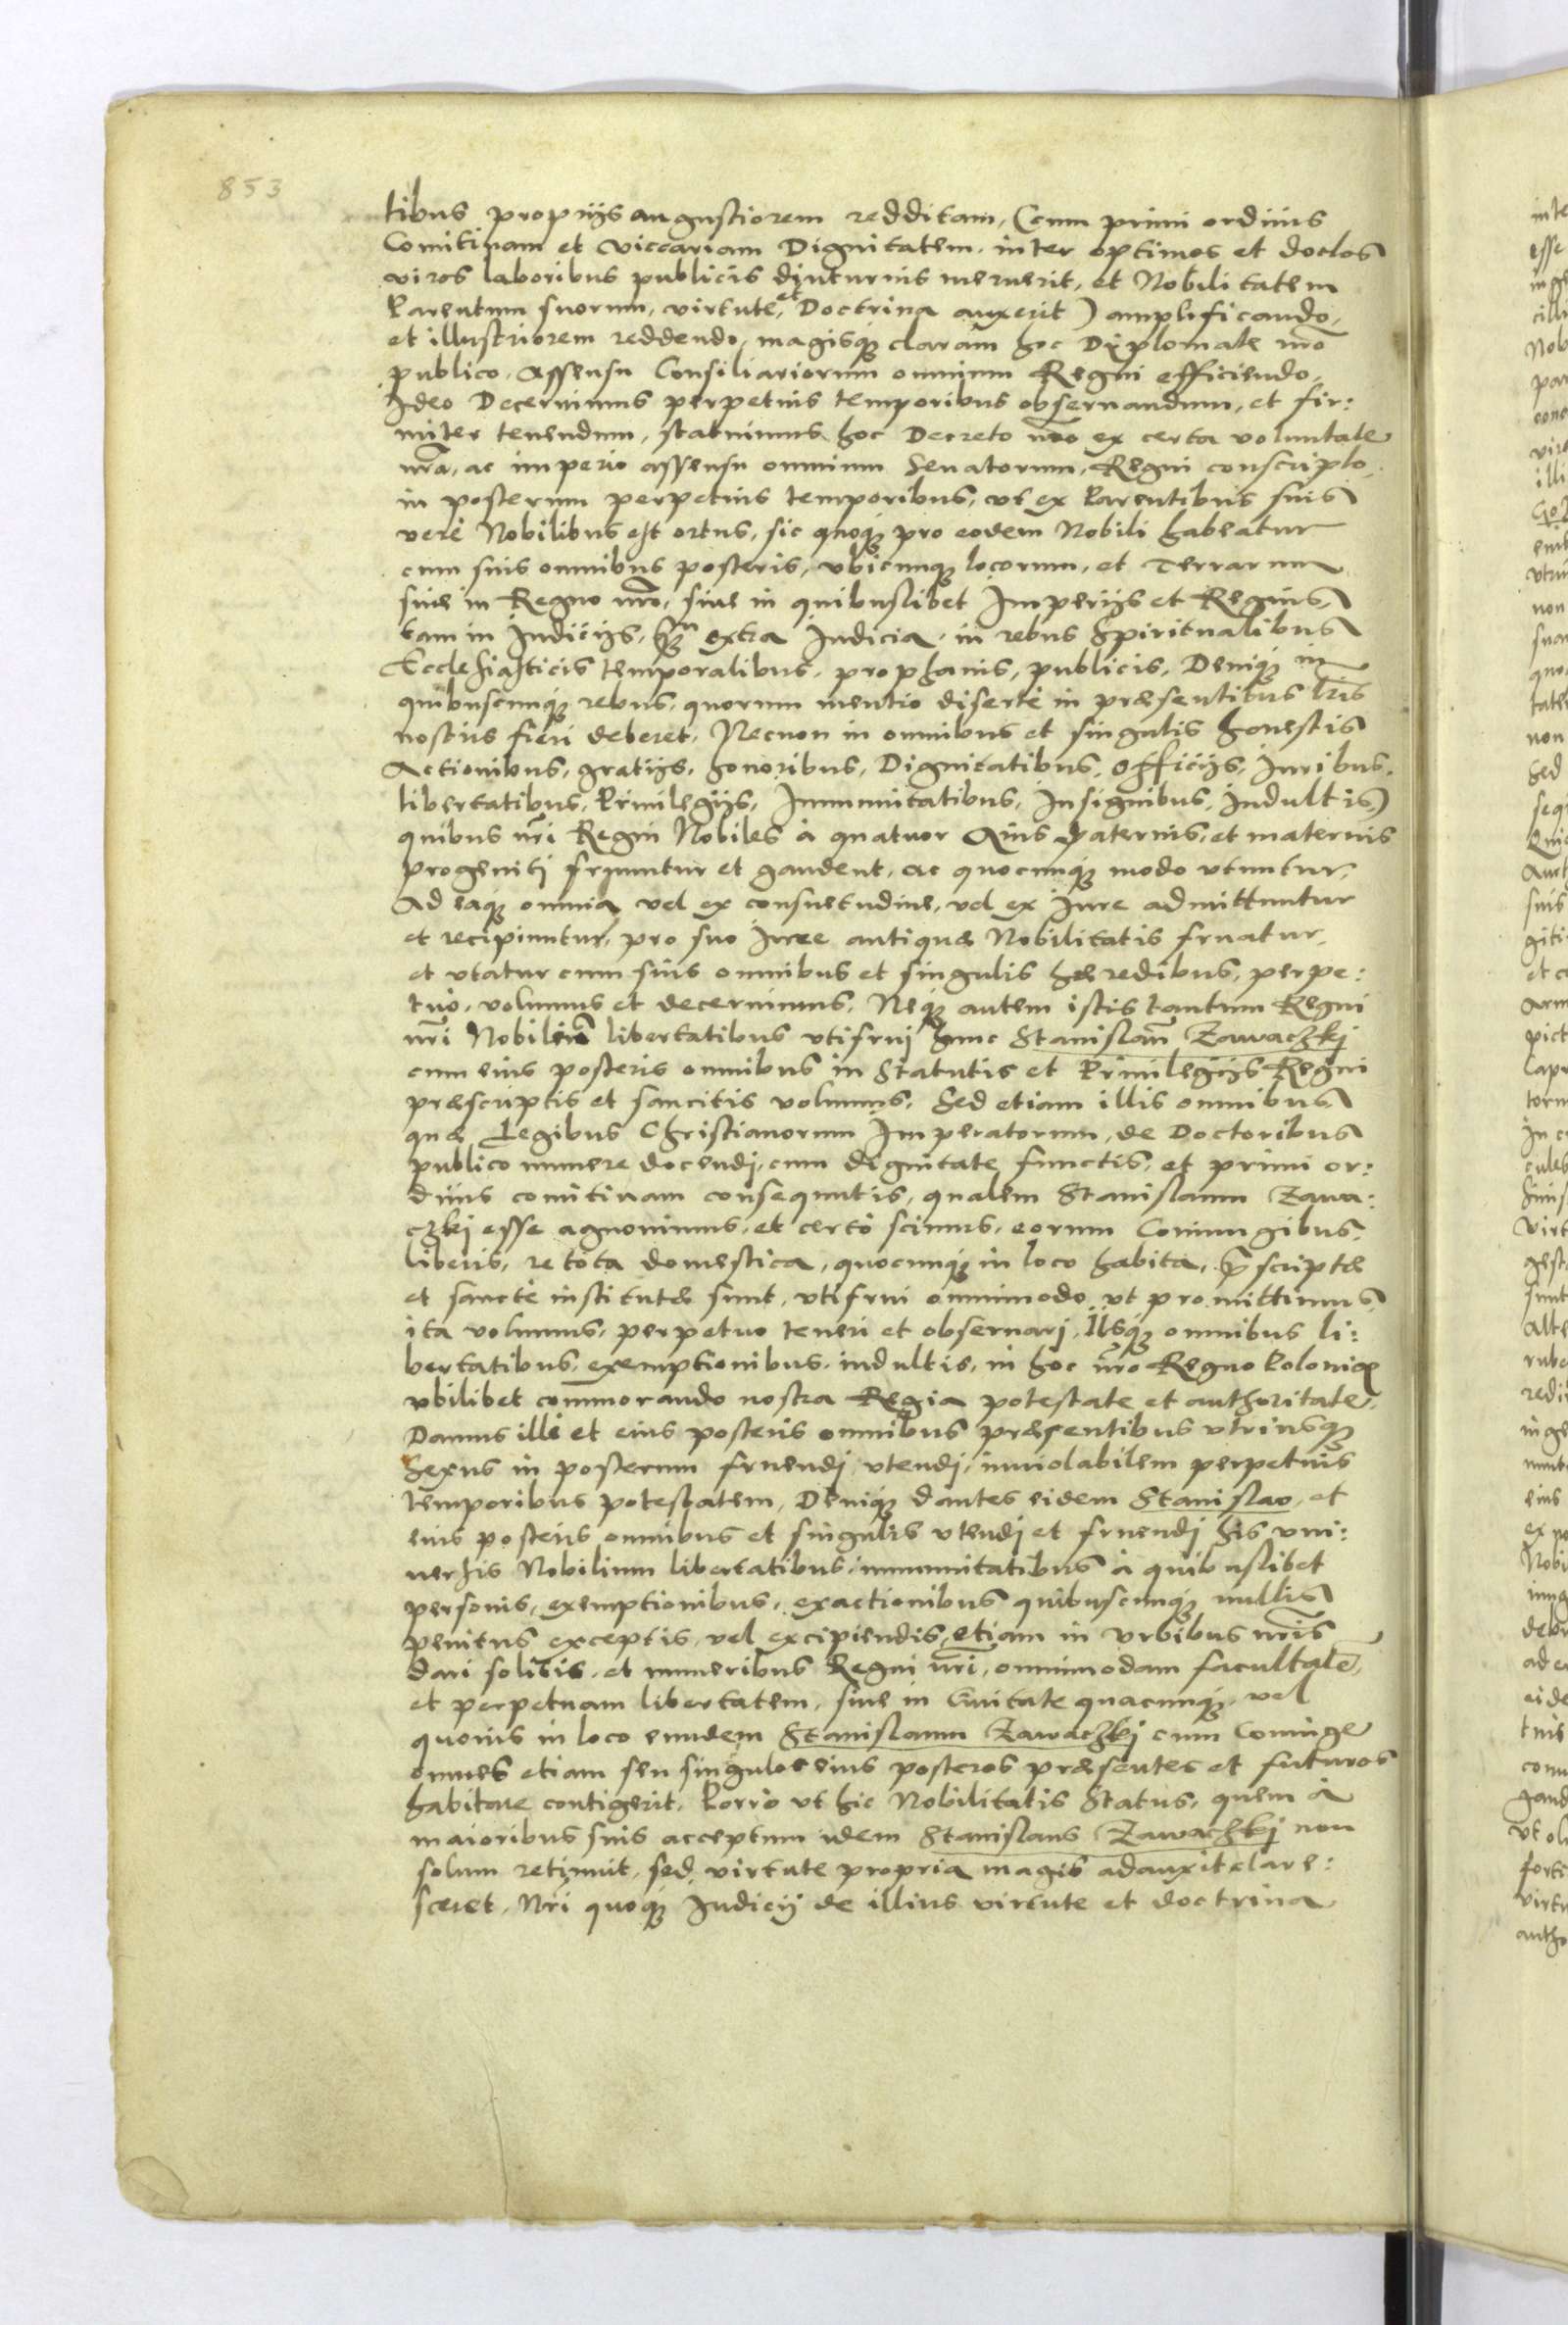 853
tibus proprijs angustiorem redditam, (cum primi ordinis
Comitiuam et viccariam Dignitatem inter optimos et doctos
viros laboribus publicis diuturnis meruerit, et Nobilitatem
Parentum suorum, virtute, et Doctrina auxerit) amplificando,
et illustriorem reddendo, magisq; claram hoc Dyplomate nro
publico, assensu Consiliariorum omnium Regni efficiendo,
Ideo Decernimus perpetuis temporibus obseruandum, et fir:
miter tenendum, statuimus hoc Decreto nro ex certa voluntate
nra, ac imperio assensu omnium Senatorum, Regni conscripto
in posterum perpetuis temporibus, vt ex Parentibus suis
verè Nobilibus est ortus, sic quoq; pro eodem Nobili habeatur
cum suis omnibus posteris, vbicunq; locorum, et Terrarum
siue in Regno nro, siue in quibuslibet Imperijs et Regnis,
tam in Iudicijs, q̃m extra Iudicia, in rebus Spiritualibus
Ecclesiasticis temporalibus, prophanis, publicis, Deniq; in
quibuscunq; rebus, quorum mentio disertè in præsentibus lris
nostris fieri deberet, Necnon in omnibus et singulis honestis
Actionibus, gratijs, honoribus, Dignitatibus, officijs, Iuribus,
libertatibus, Priuilegijs, Immunitatibus, Insignibus, Indultis,
quibus nri Regni Nobiles à quatuor Auis paternis, et maternis
progeniti fruuntur et gaudent, ac quocunq; modo vtuntur,
Ad eaq; omnia vel ex consuetudine, vel ex Iure admittuntur
et recipiuntur, pro suo Iure antiquæ Nobilitatis fruatur,
et vtatur cum suis omnibus et singulis hæredibus, perpe:
tuò, volumus et decernimus, Neq; autem istis tantum Regni
nri Nobiliũ libertatibus vtifruj hunc Stanislaũ Zawaczkj
cum eius posteris omnibus in Statutis et Priuilegijs Regni
præscriptis et sancitis volumus, Sed etiam illis omnibus
quæ Legibus Christianorum Imperatorum, de Doctoribus
publico munere docendj, cum dignitate functis, et primi or:
dinis comitiuam consequutis, qualem Stanislaum Zawa:
czkj esse agnouimus, et certò scimus, eorum Coniungibus,
liberis, re tota domestica, quocunq; in loco habita, p̃scriptæ
et sanctè institutæ sunt, vtifrui omnimodo, vt promittimus,
ita volumus, perpetuo teneri et obseruarj, Ilsq; omnibus li:
bertatibus, exemptionibus, indultis, in hoc nro Regno Poloniæ
vbilibet commorando nostra Regia potestate et authoritate,
Damus illi et eius posteris omnibus præsentibus vtriusq;
Sexus in posterum fruendj vtendj, inuiolabilem perpetuis
temporibus potestatem, Deniq; dantes eidem Stanislao, et
eius posteris omnibus et singulis vtendj et fruendj his vni:
uersis Nobilium libertatibus, immunitatibus à quibuslibet
personis, exemptionibus, exactionibus quibuscunq; nullis
penitus exceptis, vel excipiendis, etiam in vrbibus nris
dari solitis, et muneribus Regni nri, omnimodam facultatẽ,
et perpetuam libertatem, siue in Ciuitate quacunq; vel
quouis in loco eundem Stanislaum Zawaczkj cum Coniuge
omnes etiam seu singulos eius posteros præsentes et futuros
habitare contigerit, Porrò vt hic Nobilitatis Status, quem à
maioribus suis acceptum idem Stanislaus Zawaczkj non
solum retinuit, sed virtute propria magis adauxit clare:
sceret, Nri quoq; Iudicij de illius virtute et doctrina